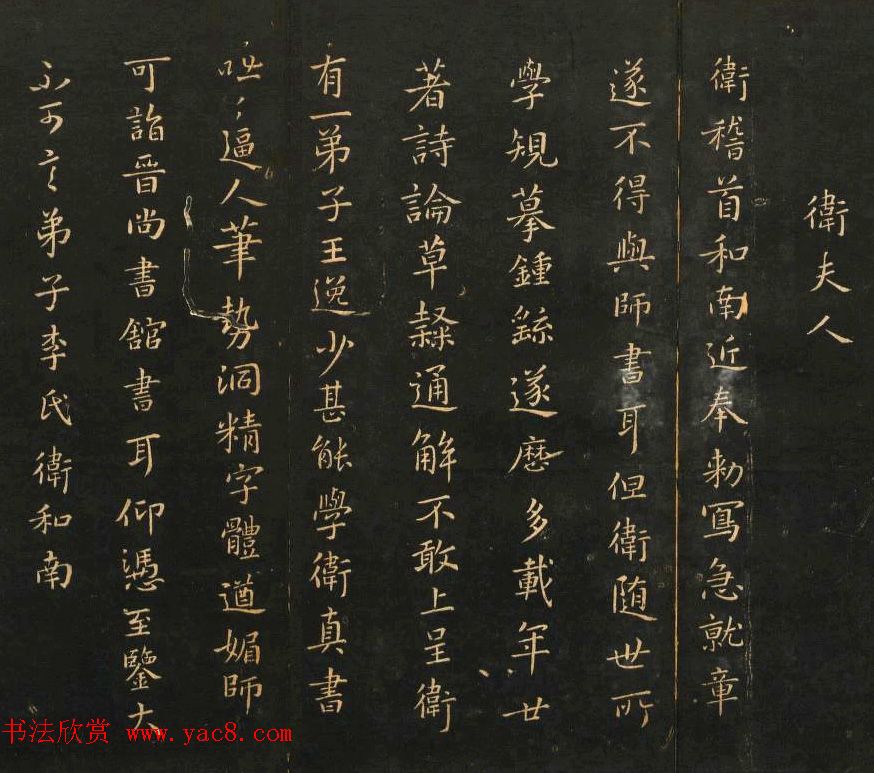 衛夫人
衛稽首和南近奉勑寫急就章
遂不得與師書耳但衛随世所
學規摹鍾繇遂歷多載年廿
著詩論草隸通解不敢上呈衛
有一弟子王逸少甚能學衛真書
咄〻逼人筆勢洞精字體遒媚師
可詣晉尚書館書耳仰憑至鑒大
不可言弟子李氏衛和南
书法欣赏 www.yac8.com